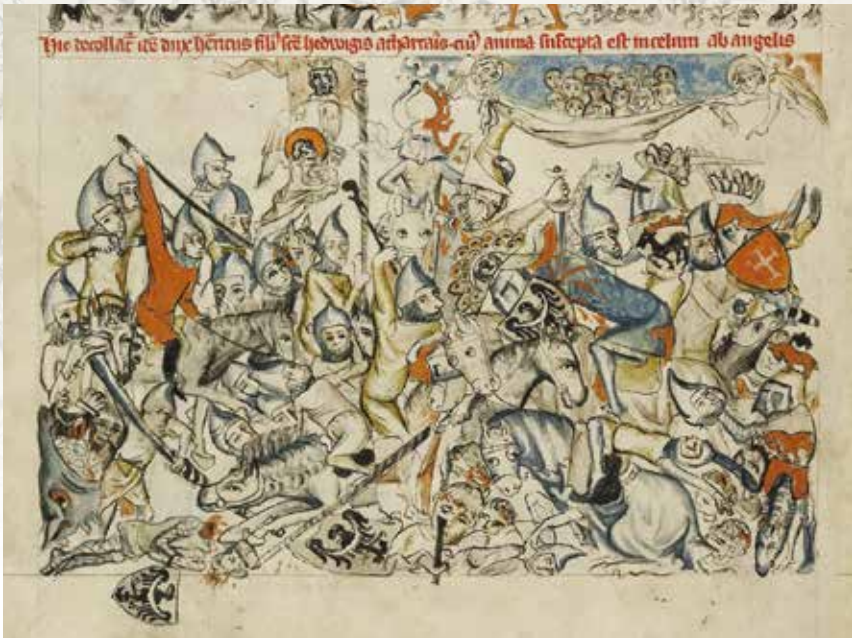 Hic decollat᷒ ītē dux hēricus fili᷒ scē hedwigis athartaīs cui᷒ anima suscepta est in celum ab angelis